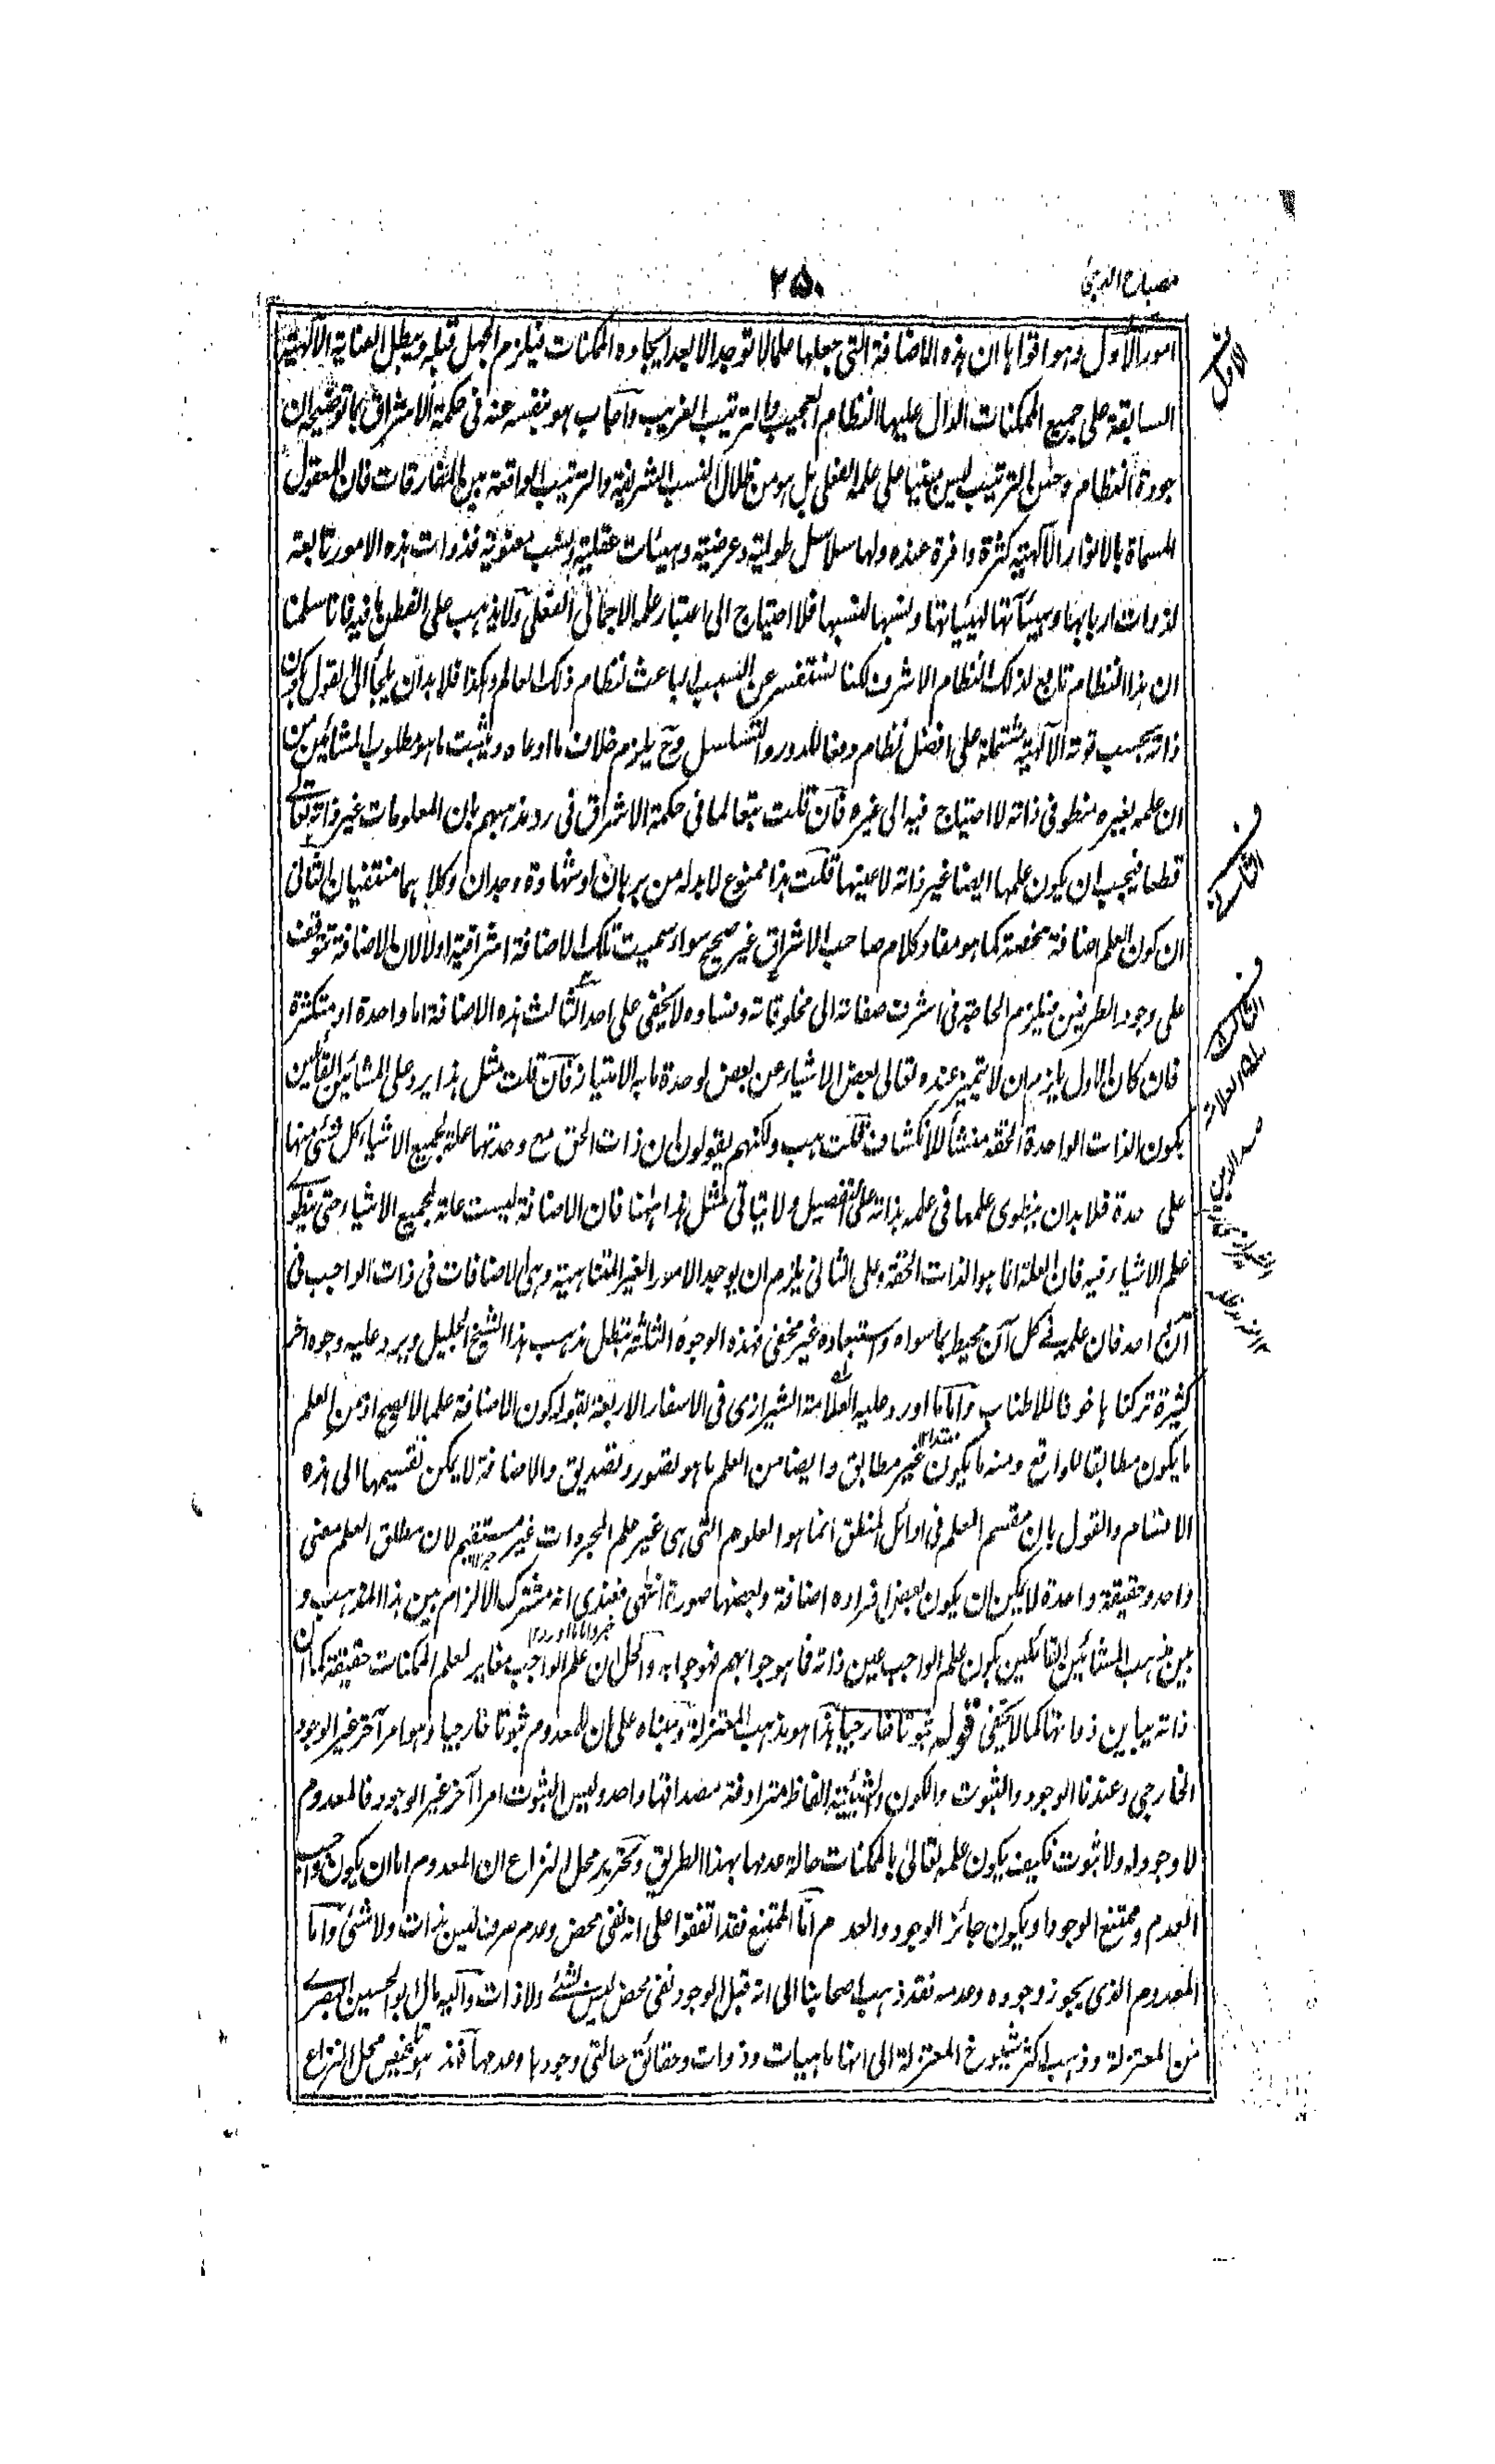 مصباح الدجى
٢٥٠
امور الأول وهو اقواها ان هذه الاضافة التى جعلها علما لا توجد الا بعد ايجاده الممكنات فيلزم الجهل قبله ويبطل العناية الآلهية
السابقة على جميع الممكنات الدال عليها النظام العجيب والترتيب الغريب وأجاب هو بنفسه عنه فى حكمة الاشراق بما توضيحه ان
جودة النظام وحسن الترتيب ليس مبنيا على علمه الفعلى بل هو من ظلال النسب الشريفة والترتيب الواقعة بين المفارقات فان العقول
المسماة بالانوار الآلهية كثرة وافرة عنده ولها سلاسل طولية وعرضية وهيئات عقلية ونسب معنوية فذوات هذه الامور تابعة
لذوات اربابها وهيئآتها لهيئياتها ونسبها لنسبها فلا احتياج الى اعتبار علمه الاجمالى الفعلى ولا يذهب على الفطن ما فيه فانا سلمنا
ان هذا النظام تابع لذلك النظام الاشرف لكنا نستفسر عن السبب الباعث لنظام ذلك العالم وهكذا فلا بد ان يلجأ الى القول بكون
ذاته بحسب قوته الآلهية مشتملة على افضل نظام دفعا للدور والتسلسل وح يلزم خلاف ما ادعاه ويثبت ما هو مطلوب المشائين من
ان علمه بغيره منطو فى ذاته لا احتياج فيه الى غيره فان قلت تبعا لما فى حكمة الاشراق فى رد مذهبهم بان المعلومات غير ذاته تعالى
قطعا فيجب ان يكون علمها ايضا غير ذاته لا عينها قلت هذا ممنوع لا بد له من برهان او شهادة وجدان وكلاهما منتفيان الثانى
ان كون العلم اضافة محضة كما هو مفاد كلام صاحب الاشراق غير صحيح سواء سميت تلك الاضافة اشراقية او لا لان الاضافة تتوقف
على وجود الطرفين فيلزم الحاجة فى اشرف صفاته الى مخلوقاته وفساده لا يخفى على احد الثالث هذه الاضافة اما واحدة او متكثرة
فان كان الاول يلزم ان لا يتميز عنده تعالى بعض الاشياء عن بعض لوحدة ما به الامتياز فان قلت مثل هذا يرد على المشائين القائلين
بكون الذات الواحدة الحقة منشأ للانكشاف قلت هب ولكنهم يقولون ان ذات الحق مع وحدتها علة لجميع الاشياء كل شئ منها
على حدة فلا بد ان ينطوى علمها فى علمه بذاته على التفصيل ولا يتاتى مثل هذا ههنا فان الاضافة ليست علة لجميع الاشياء حتى ينطوى
علم الاشياء فيه فان العلة انما هو الذات الحقة وعلى الثانى يلزم ان يوجد الامور الغير المتناهية وهى الاضافات فى ذات الواجب فى
آن واحد فان علمه فى كل آن محيط بما سواه واستبعاده غير مخفى فهذه الوجوه الثلثة تبطل مذهب هذا الشيخ الجليل ويرد عليه وجوه اخر
كثيرة تركناها خوفا للاطناب وأما ما اورد عليه العلامة الشيرازى فى الاسفار الاربعة بقوله كون الاضافة علما لا يصح اذ من العلم
ما يكون مطابقا للواقع ومنه ما يكون غير مطابق وايضا من العلم ما هو تصور وتصديق والاضافة لا يمكن تقسيمها الى هذه
الاقسام والقول بان مقسم العلم فى اوائل المنطق انما هو العلوم التى هى غير علم المجردات غير مستقيم لان مطلق العلم معنى
واحد وحقيقة واحدة لا يمكن ان يكون بعض افراده اضافة وبعضها صورة انتهى فعندى انه مشترك الالزام بين هذا المذهب و
بين مذهب المشائين القائلين بكون علم الواجب عين ذاته فما هو جوابهم فهو جوابه والحل ان علم الواجب مغاير لعلم الممكنات حقيقة كما ان
ذاته يباين ذواتها كما لا يخفى قوله ثبوتا خارجيا هذا هو مذهب المعتزلة ومبناه على ان للمعدوم ثبوتا خارجيا وهو امر آخر غير الوجود
الخارجى وعندنا الوجود والثبوت والكون والشيئية الفاظ مترادفة مصداقها واحد وليس الثبوت امرا آخر غير الوجود فالمعدوم
لا وجود له ولا ثبوت فكيف يكون علمه تعالى بالممكنات حالة عدمها بهذا الطريق وتحرير محل النزاع ان المعدوم اما ان يكون واجب
العدم وممتنع الوجود او يكون جائز الوجود والعدم اما الممتنع فقد اتفقوا على انه نفى محض وعدم صرف ليس بذات ولا شئ وأما
المعدوم الذى يجوز وجوده وعدمه فقد ذهب اصحابنا الى انه قبل الوجود نفى محض ليس بشئ ولا ذات وآليه مال ابو الحسين البصرى
من المعتزلة وذهب اكثر شيوخ المعتزلة الى انها ماهيات وذوات وحقائق حالتى وجودها وعدمها فهذا هو تلخيص محل النزاع
الاول
الثانى
الثالث
صدر الدين